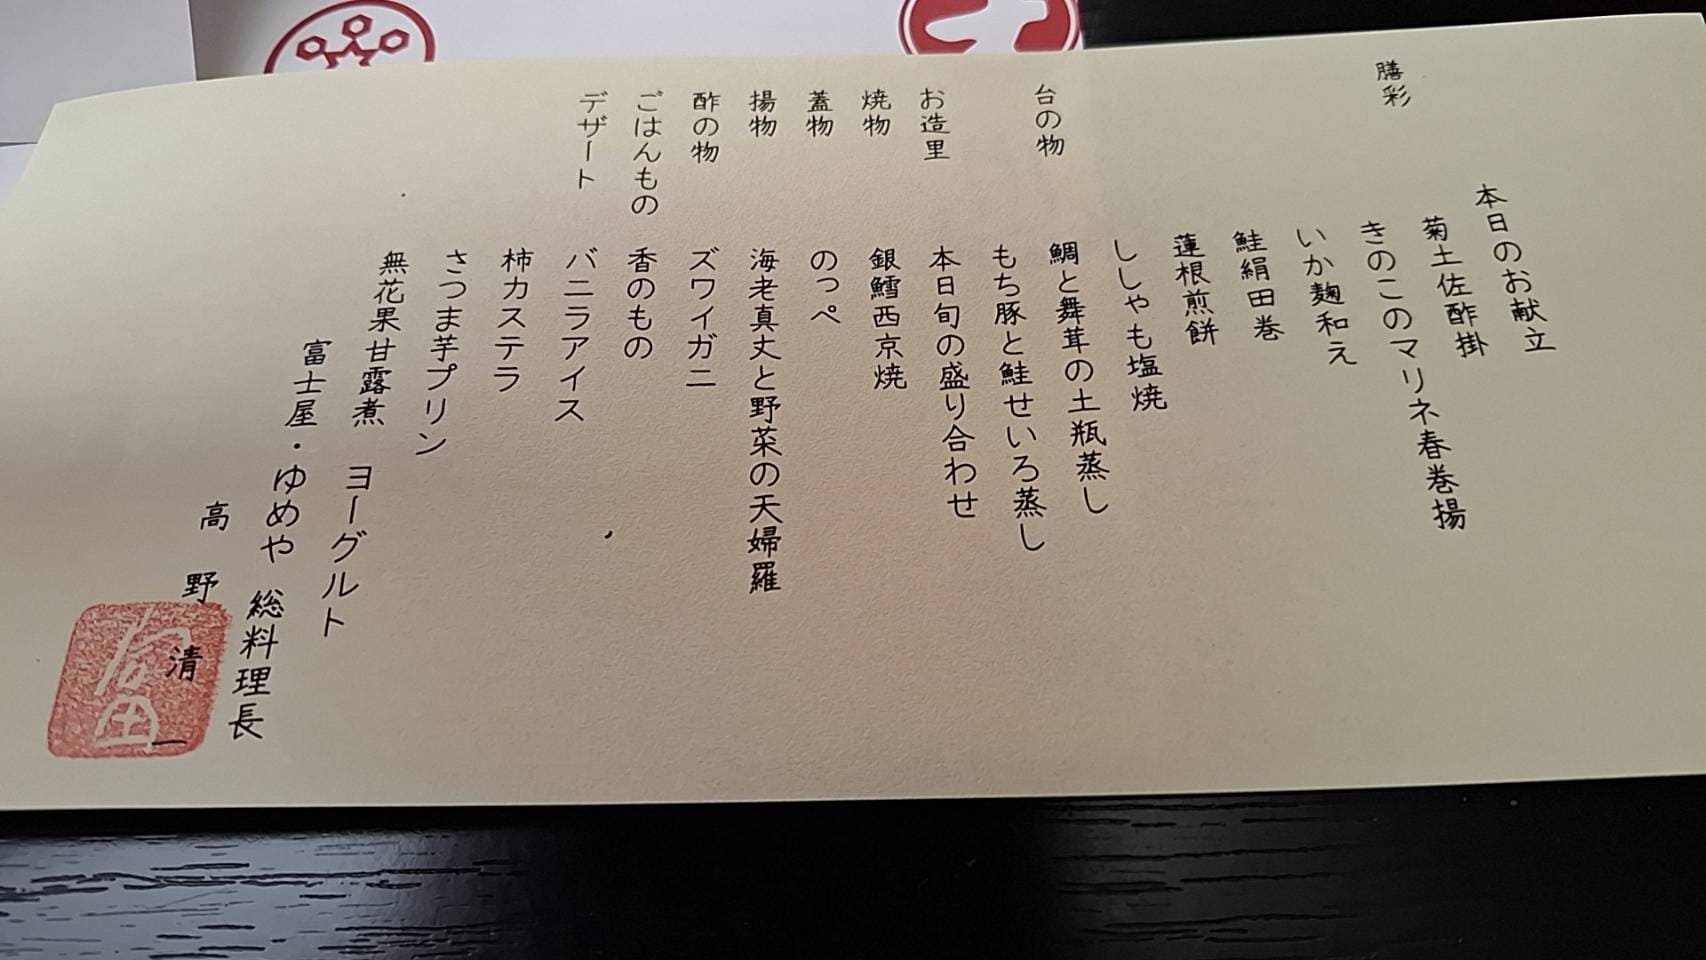 本日のお献立
菊土佐酢掛
膳彩
きのこのマリネ春巻揚
いか麹和え
鮭絹田巻
蓮根煎餅
ししゃも塩焼
台の物
鯛と舞茸の土瓶蒸し
もち豚と鮭せいろ蒸し
お造里
本日旬の盛り合わせ
焼物
銀鱈西京焼
蓋物
のっぺ
揚物
海老真丈と野菜の天婦羅
酢の物
ズワイガニ
ごはんもの
香のもの
デザート
バニラアイス
柿カステラ
さつま芋プリン
無花果甘露煮 ヨーグルト
富士屋・ゆめや 総料理長
高野清一